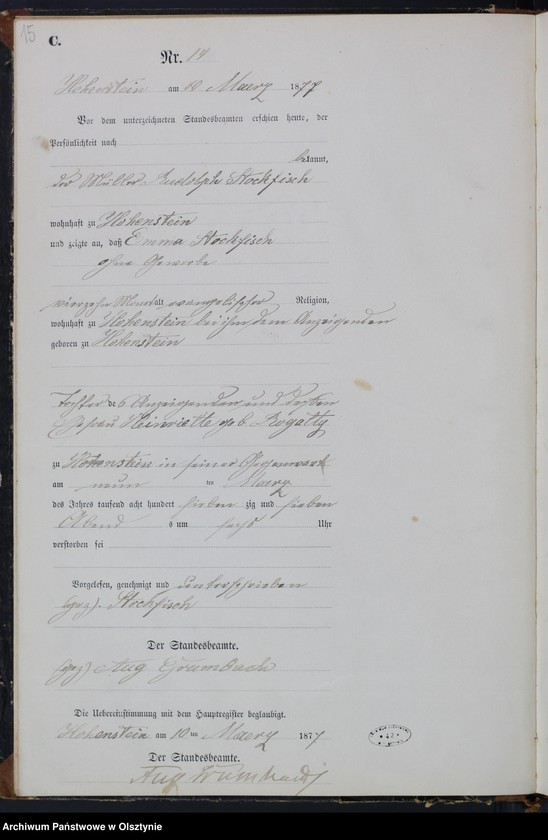 15
C.
Nr. 14
Hohenstein am 10 Maerz 1877
Vor dem unterzeichneten Standesbeamten erschien heute, der
Persönlichkeit nach
bekannt,
der Müller Rudolph Stockfisch
wohnhaft zu Hohenstein
und zeigte an, daß Emma Stockfisch
ohne Gewerbe
vierzehn Monat alt evangelischer Religion,
wohnhaft zu Hohenstein bei ihm dem Anzeigenden
geboren zu Hohenstein
Tochter des Anzeigenden und dessen
Ehefrau Heinriette geb. Rogalty
zu Hohenstein in seiner Gegenwart
am neun ten Maerz
des Jahres tausend acht hundert sieben zig und sieben
Abend s um sechs Uhr
verstorben sei
Vorgelesen, genehmigt und unterschrieben
(gez). Stockfisch
Der Standesbeamte.
(gez) Aug Grumbach
Die Uebereinstimmung mit dem Hauptregister beglaubigt.
Hohenstein am 10 ten Maerz 1877
Der Standesbeamte.
Aug Grumbach
Archiwum Państwowe w Olsztynie